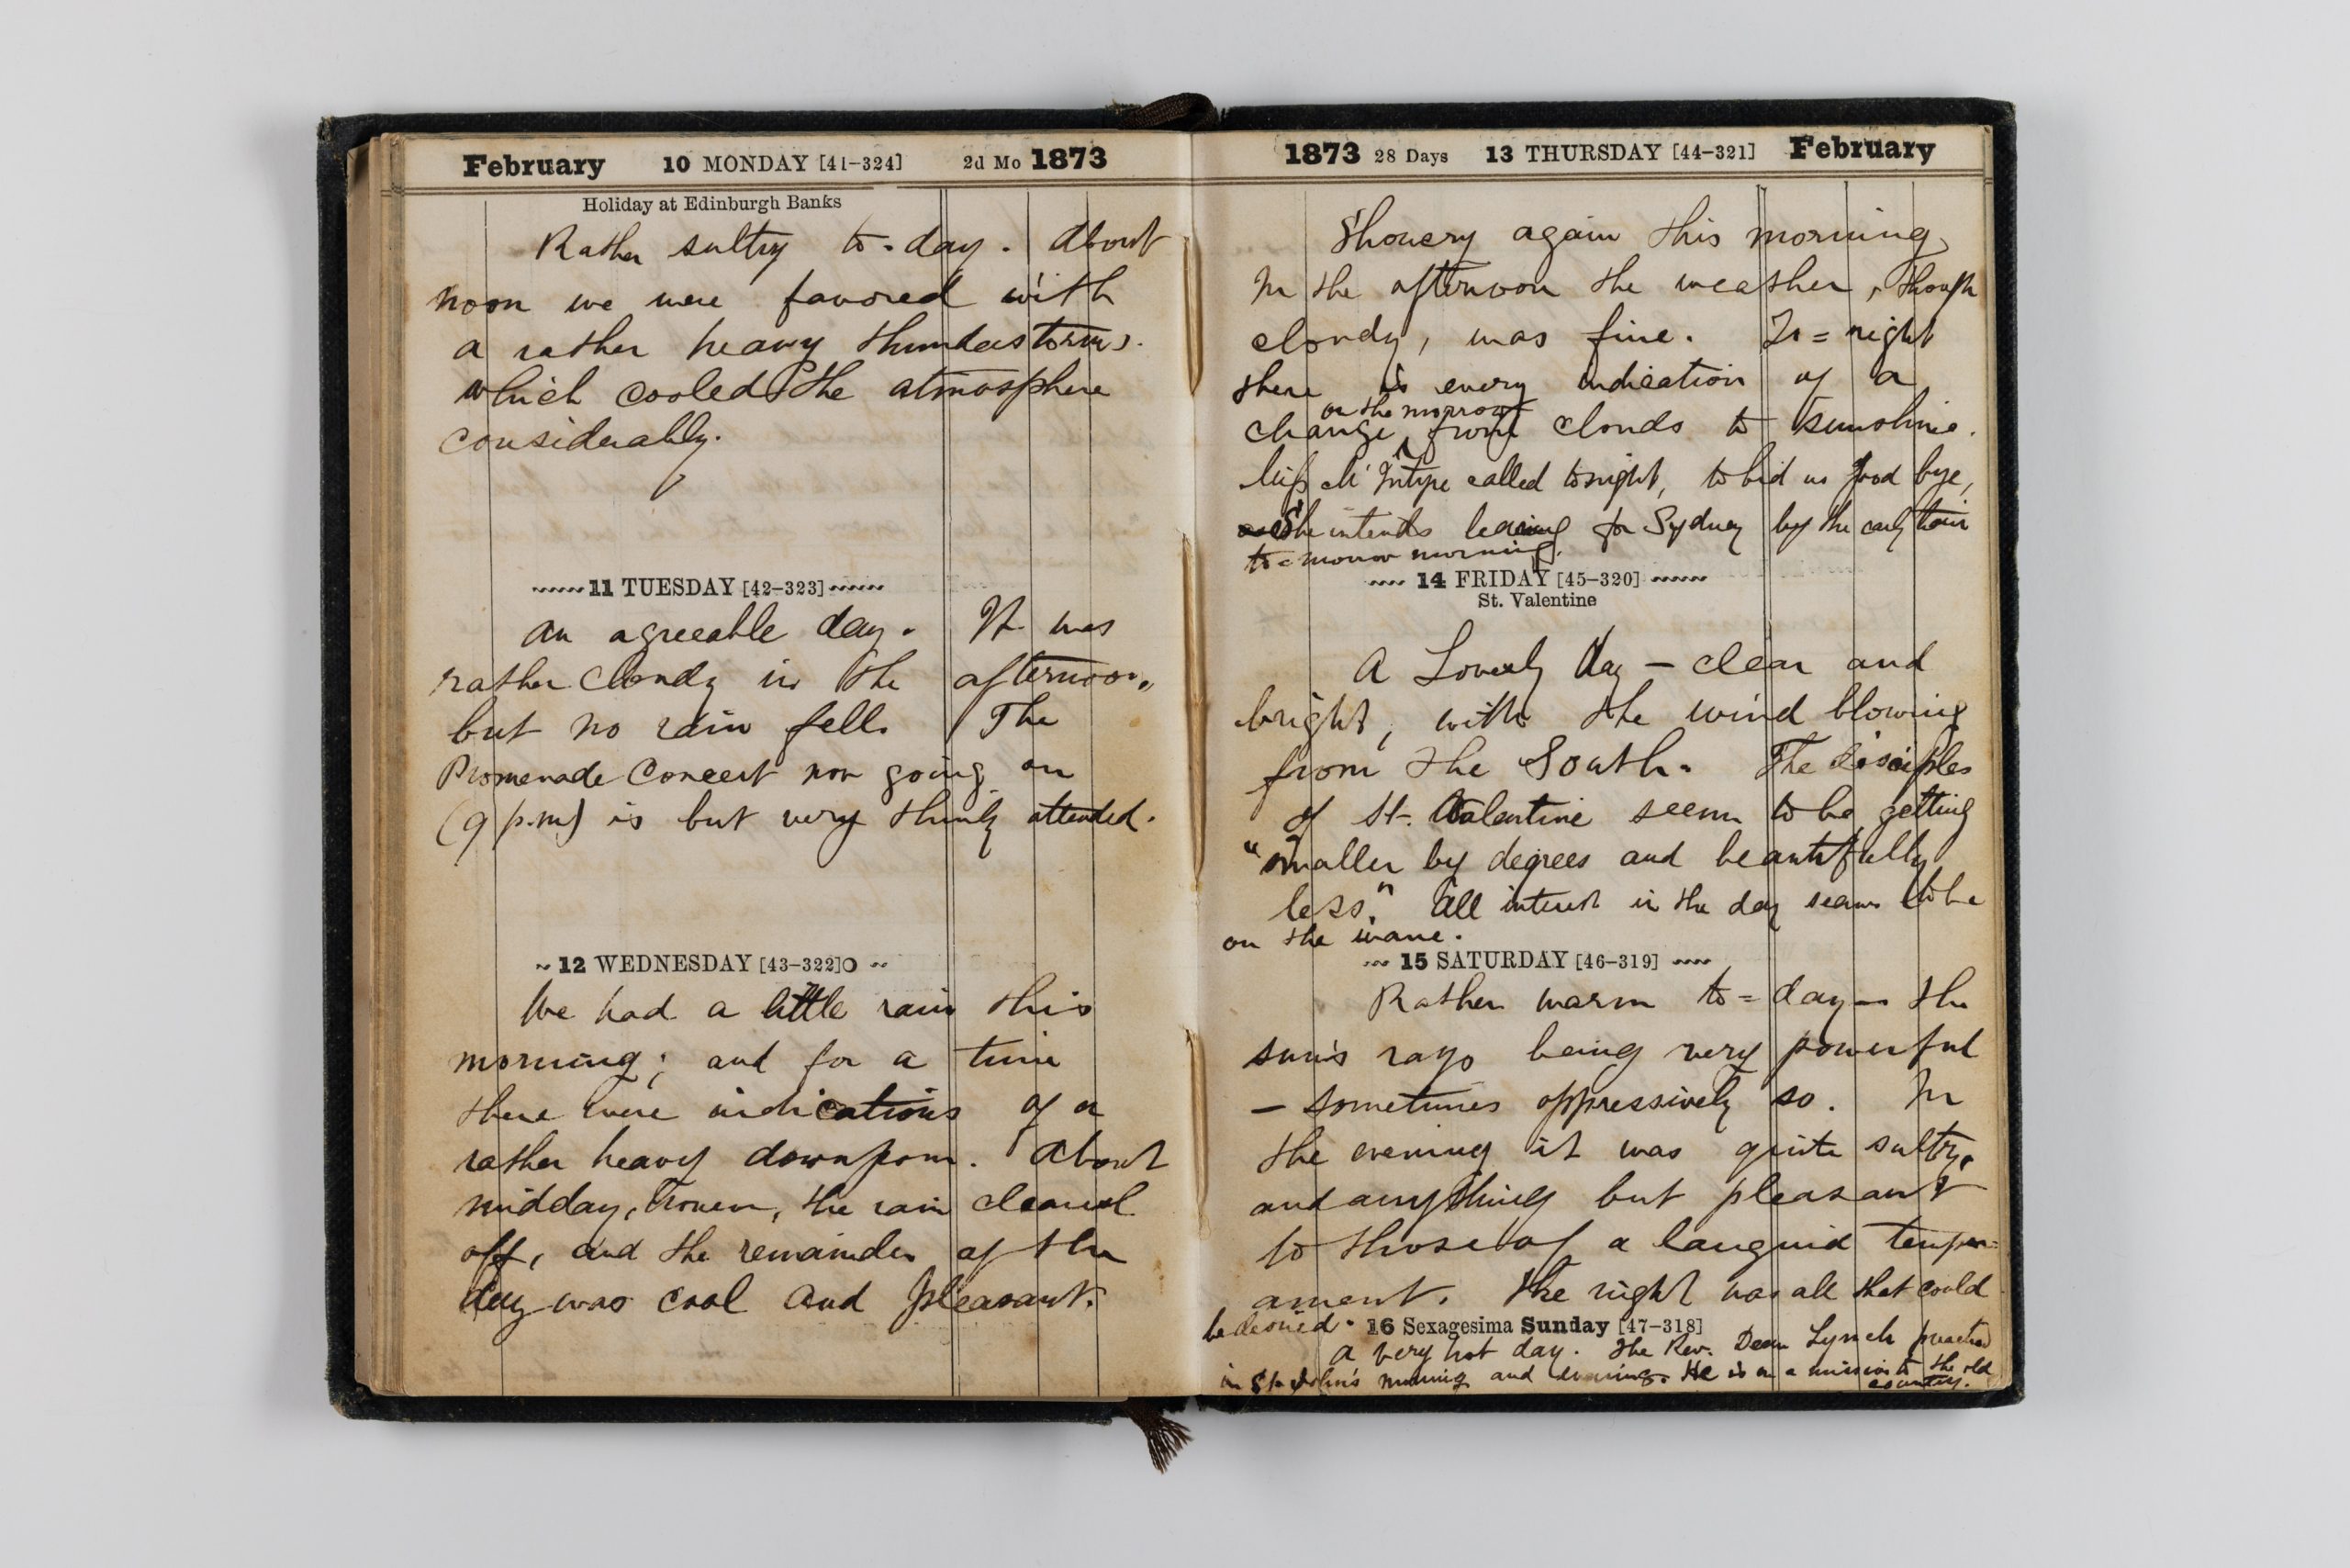 February 10 MONDAY [41-324] 2d Mo 1873
Holiday at Edinburgh Banks
Rather sultry to-day. About
noon we were favored with
a rather heavy thunderstorm,
which cooled the atmosphere
considerably.
11 TUESDAY [42-323]
An agreeable day. It was
rather cloudy in the afternoon,
but no rain fell. The
Promenade Concert now going on
(9 p.m) is but very thinly attended.
12 WEDNESDAY [43-322]O
We had a little rain this
morning; and for a time
there were indications of a
rather heavy downpour. About
midday, however, the rain cleared
off, and the remainder of the
day was cool and pleasant.
1873 28 Days 13 THURSDAY [44-321] February
Showery again this morning,
In the afternoon the weather, though
cloudy, was fine. To=night
there is every indication of a
on the morrow
change from clouds to sunshine.
Miss M'Intype called tonight, to bid us good bye,
She intends leaving for Sydney by the early train
to=morrow morning.
14 FRIDAY [45-320]
St. Valentine
A Lovely day — clear and
bright, with the wind blowing
from the South. The disciples
of St. Valentine seem to be getting
"smaller by degrees and beautifully
less." All interest in the day seems to be
on the wane.
15 SATURDAY [46-319]
Rather warm to=day — the
sun's rays being very powerful
— sometimes oppressively so. In
the evening it was quite sultry,
and anything but pleasant
to those of a languid temper=
ament. The night was all that could
be desired.
16 Sexagesima Sunday [47-318]
A very hot day. The Rev. Dean Lynch preached
in St. John's morning and evening. He is on a mission to the old
country.